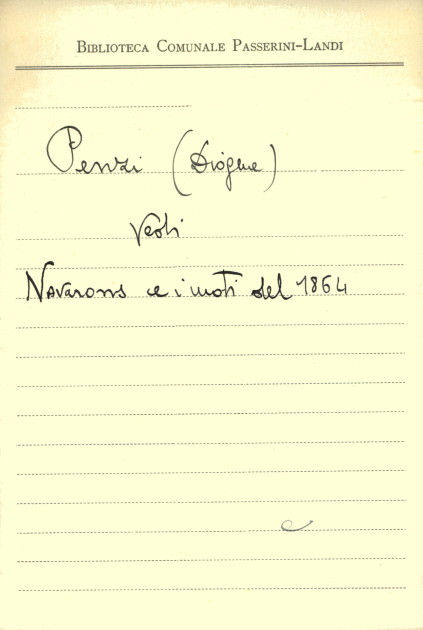 BIBLIOTECA COMUNALE PASSERINI-LANDI
Penzi (Diogene)
Vedi
Navarons e i moti del 1864